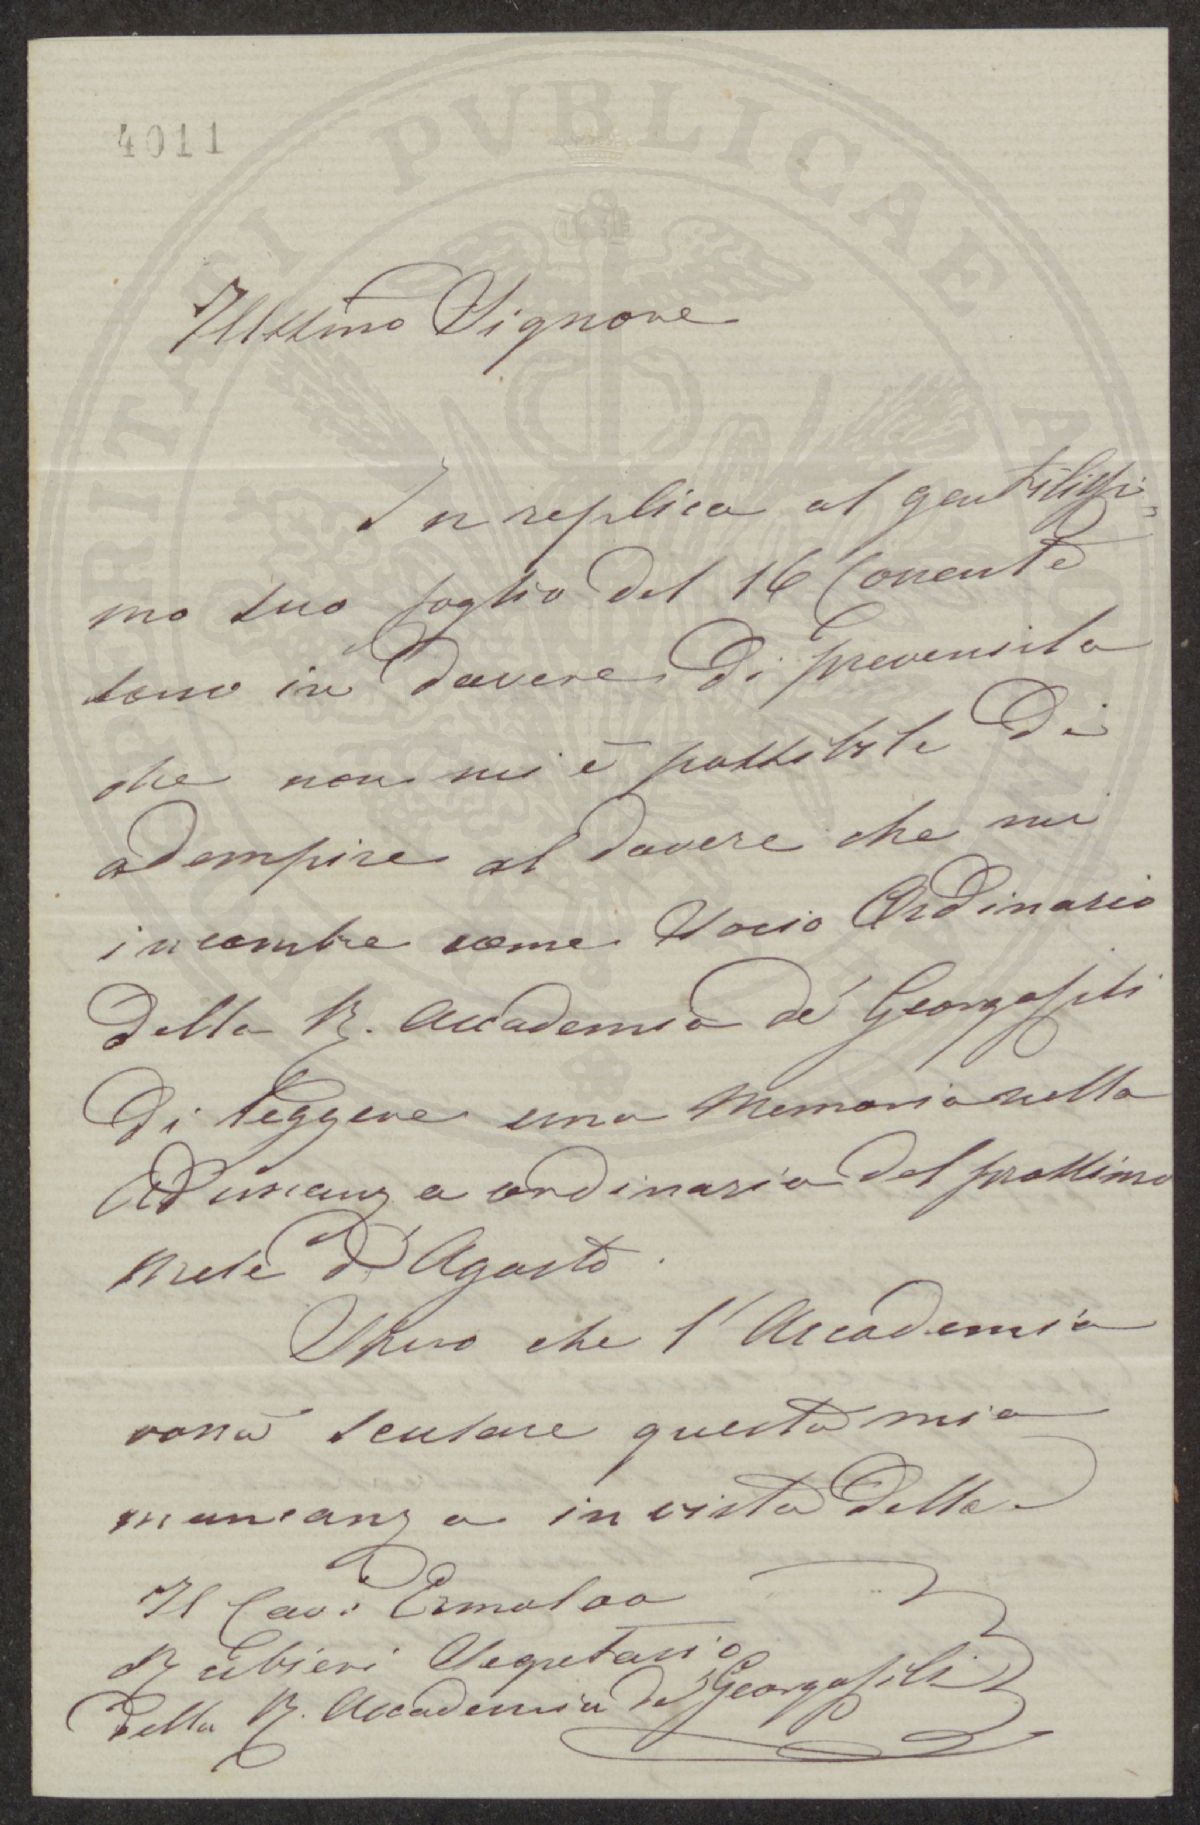 4011
PROSPERITATI PUBLICAE AUGENDAE
Illustrmo Signore
In replica al gentilissi=
mo suo foglio del 16 Corrente
sono in dovere di prevenirla
che non mi è possibile di
adempire al dovere che mi
incombe come Socio Ordinario
della R. Accademia de' Georgofili
di leggere una Memoria nella
Adunanza ordinaria del prossimo
mese d'Agosto.
Spero che l'Accademia
vorrà scusare questa mia
mancanza in vista della
Il Cav: Ermolao
Rubieri Segretario
della R. Accademia de' Georgofili